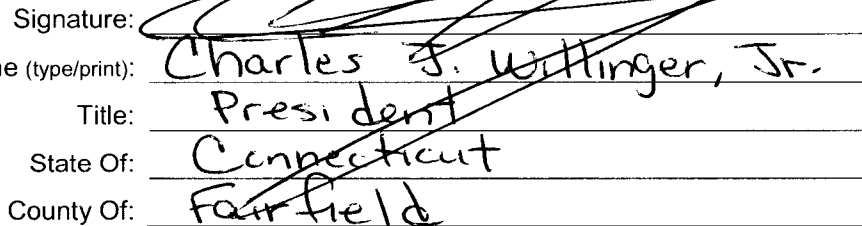 Signature:
e (type/print): Charles J. Willinger, Jr.
Title: President
State Of: Connecticut
County Of: Fairfield